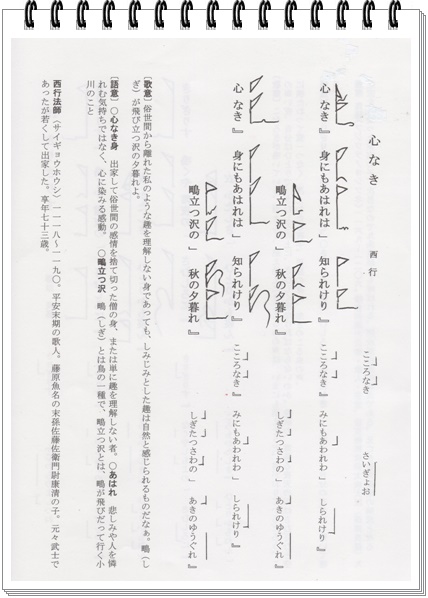 心なき　西行　こころなき　さいぎょお
心なき』　身にもあはれは」　知られけり』　こころなき』　みにもあわれわ」　しられけり』
鴫立つ沢の」　秋の夕暮れ』　しぎたつさわの」　あきのゆうぐれ』
心なき』　身にもあはれは」　知られけり』　こころなき』　みにもあわれわ」　しられけり』
鴫立つ沢の」　秋の夕暮れ』　しぎたつさわの」　あきのゆうぐれ』
〔歌意〕俗世間から離れた私のような趣を理解しない身であっても、しみじみとした趣は自然と感じられるものだなぁ。鴫（し
ぎ）が飛び立つ沢の夕暮れよ。
〔語意〕○心なき身　出家して俗世間の感情を捨て切った僧の身、または単に趣を理解しない者。○あはれ　悲しみや人を憐
れむ気持ちではなく、心に染みる感動。　○鴫立つ沢　鴫（しぎ）とは鳥の一種で、鴫立つ沢とは、鴫が飛びだって行く小
川のこと
西行法師（サイギョウホウシ）一一一八～一一九〇、平安末期の歌人。藤原魚名の末孫佐藤左衛門尉康清の子。元々武士で
あったが若くして出家した。享年七十三歳。